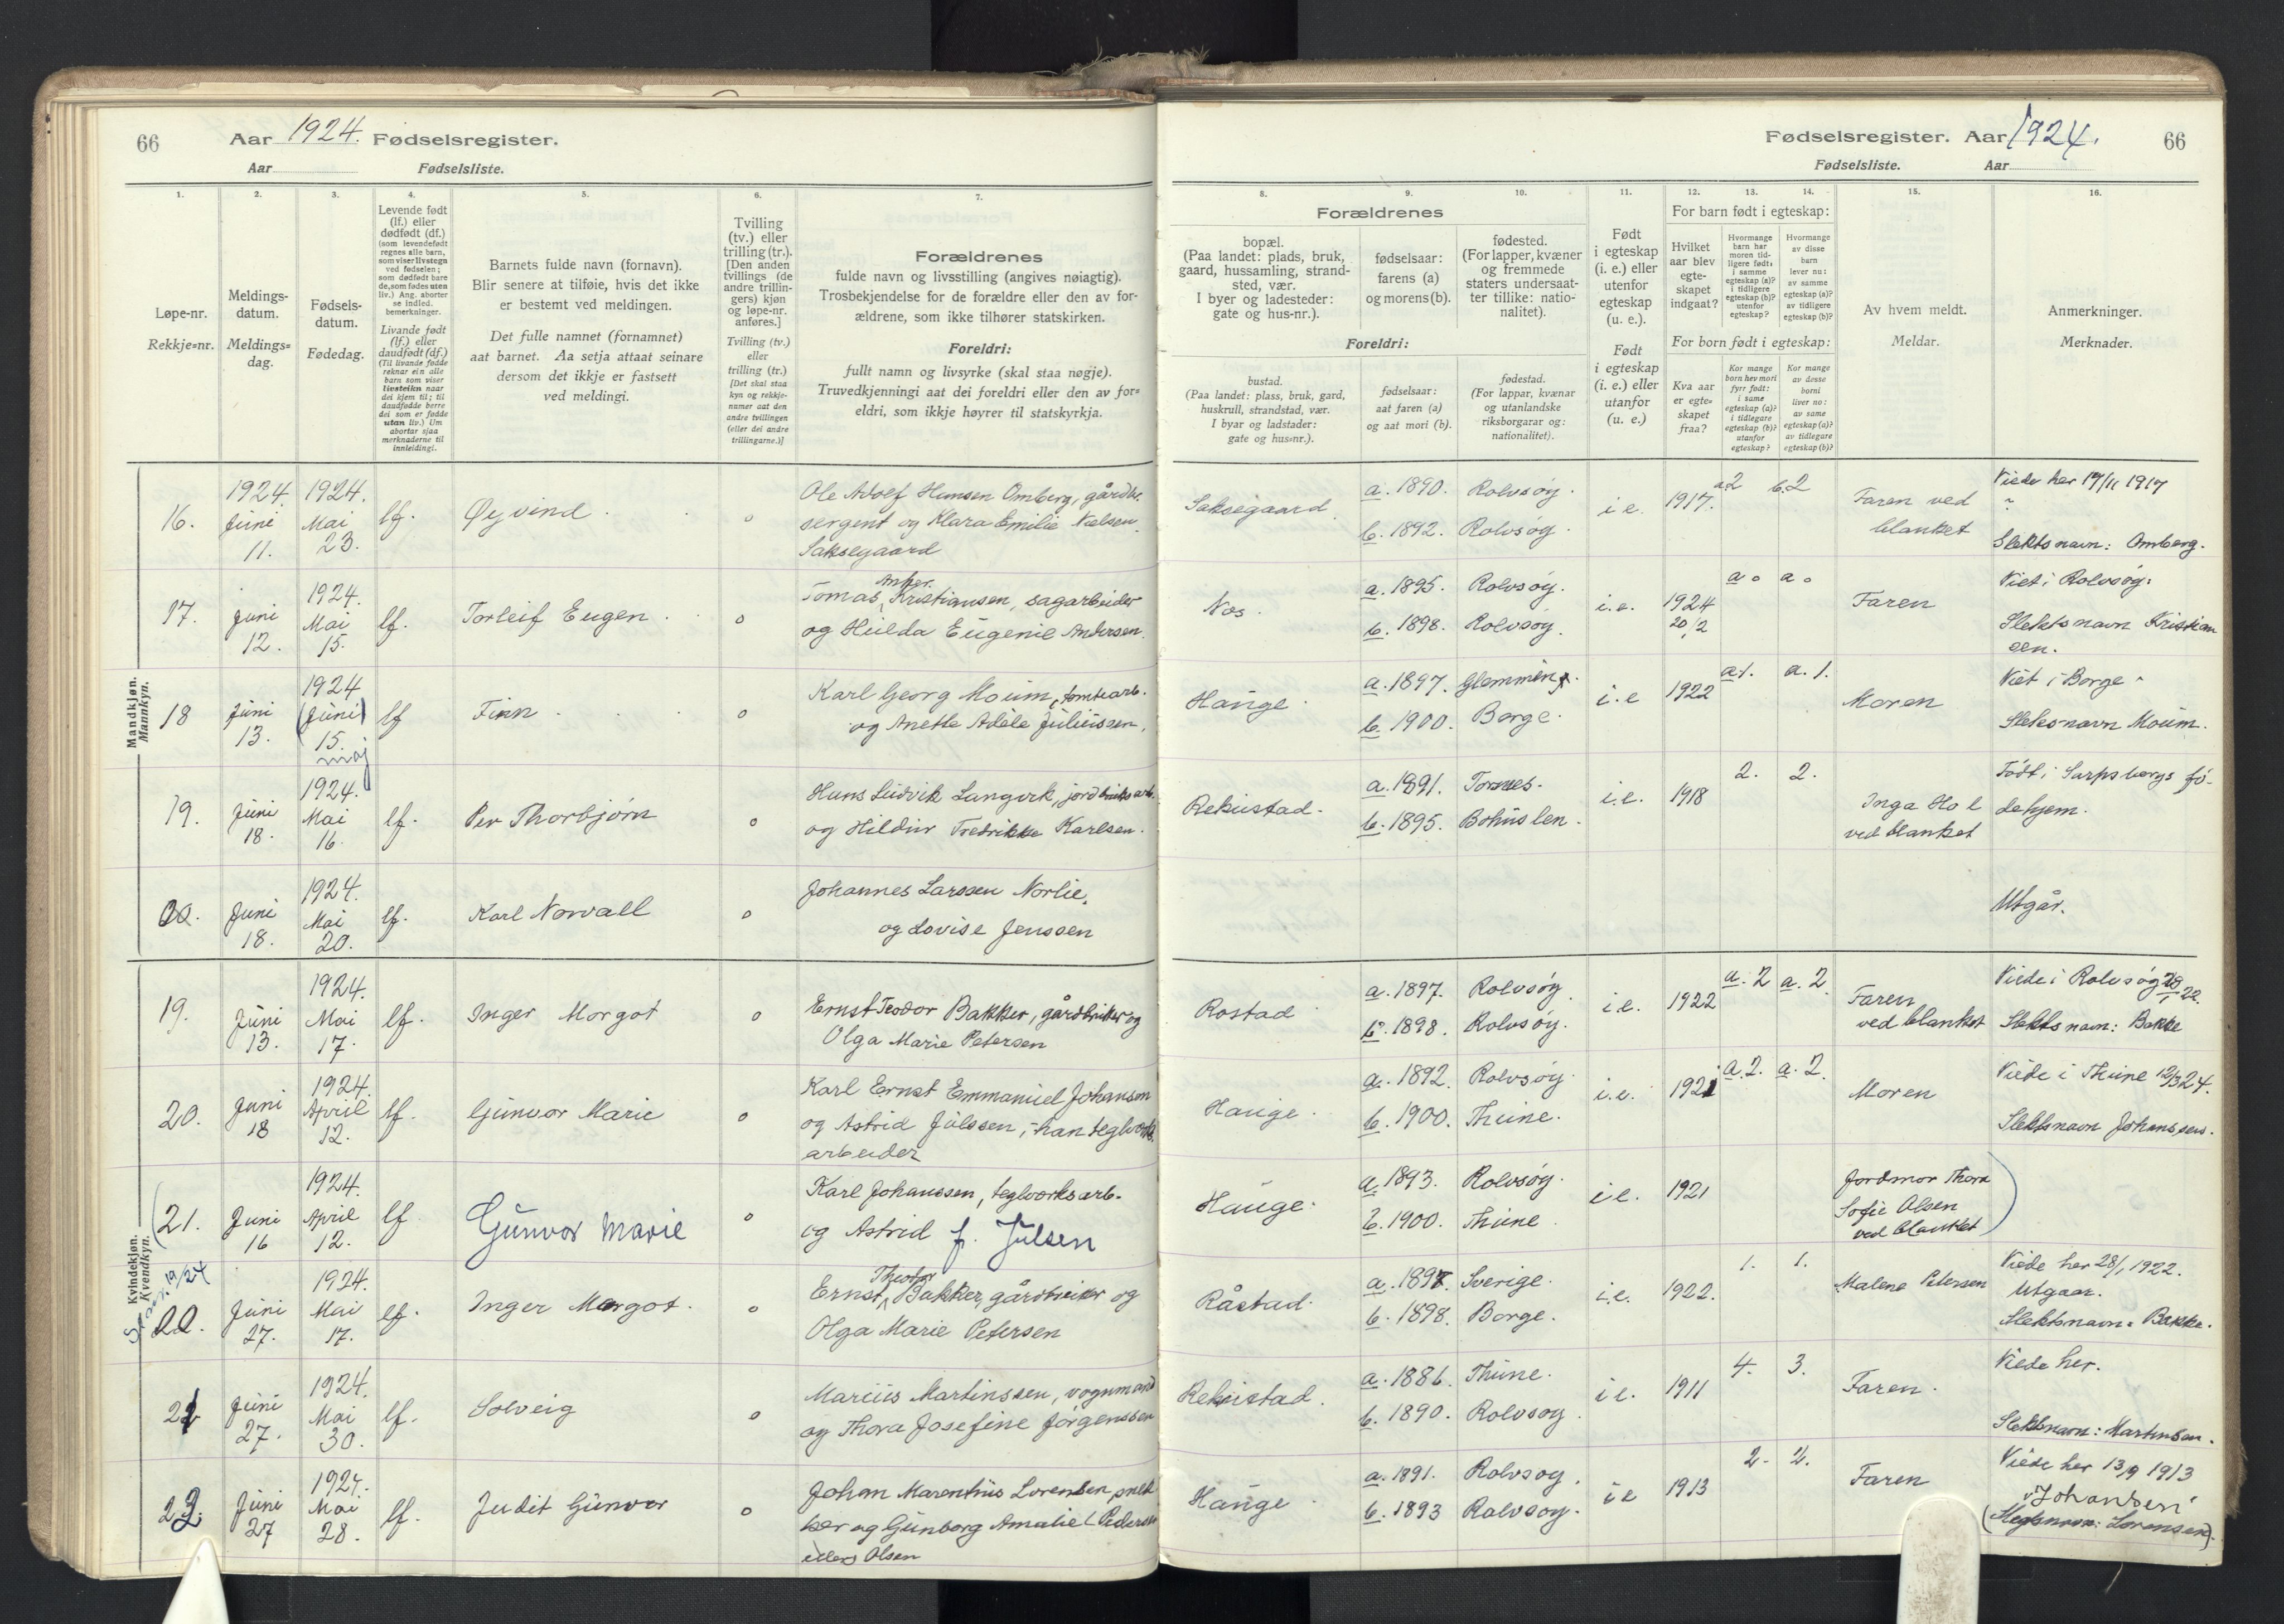 66
Aar 1924. Fødselsregister.
Aar Fødselsliste.
1. 2. 3. 4. 5. 6. 7.
Løpe-nr.
Rekkje=nr.
Meldings-
datum.
Meldings=
dag.
Fødsels-
datum.
Fødedag.
Levende født
(lf.) eller
dødfødt (df.)
(som levendefødt
regnes alle barn,
som viser livstegn
ved fødselen;
som dødfødt bare
de, som fødes uten
liv.) Ang. aborter
se indled.
bemerkninger.
Livande født
(lf.) eller
daudfødt (df.)
(Til livande fødde
reknar ein alle
barn som viser
livsteikn naar
dei kjem til; til
daudfødde berre
dei som er fødde
utan liv.) Um
abortar sjaa
merknaderne til
innleiding.
Barnets fulde navn (fornavn).
Blir senere at tilføie, hvis det ikke
er bestemt ved meldingen.
Det fulle namnet (fornamnet)
aat barnet. Aa setja attaat seinare
dersom det ikkje er fastsett
ved meldingi.
Tvilling
(tv.) eller
trilling (tr.).
[Den anden
tvillings (de
andre trillin-
gers) kjøn
og løpe-nr.
anføres.]
Tvilling (tv.)
eller
trilling (tr.)
[Det skal staa
kyn og rekkje-
numer aat den
andre tvillingen
(eller dei andre
trillingarne.)]
Forældrenes
fulde navn og livsstilling (angives nøiagtig).
Trosbekjendelse for de forældre eller den av for-
ældrene, som ikke tilhører statskirken.
Foreldri:
fullt namn og livsyrke (skal staa nøgje).
Truvedkjenningi aat dei foreldri eller den av for=
eldri, som ikkje høyrer til statskyrkja.
Mandkjøn.
Mannkyn.
16.
1924
Juni
11.
1924.
Mai
23.
lf.
Øyvind
o
Ole Adolf Hansen Omberg, gårdbr.
sergent og Klara Emilie Nielsen
Saksegaard
17.
Juni
12.
1924.
Mai
15.
lf.
Torleif Eugen
o
Anker
Tomas Kristiansen, sagarbeider
og Hulda Eugenie Andersen
18
Juni
13.
1924
(Juni)
15.
maj
lf
Finn
o
Karl Georg Moum, tomtearb.
og Anette Adele Juliussen.
19.
Juni
18.
1924.
Mai
16.
lf.
Per Thorbjørn
o
Hans Ludvik Langvik, jordbruksarb.
og Hildur Fredrikke Karlsen.
Juni
18.
1924.
Mai
20.
lf.
Karl Norvall
o
Johannes Larssen Norlie,
og Lovise Jenssen
Kvindekjøn.
Kvendkyn.
19.
Juni
13.
1924.
Mai
17.
lf.
Inger Margot
o
Ernst Teodor Bakker, gårdbruker og
Olga Marie Petersen
20.
Juni
18
1924.
April
12.
lf.
Gunvor Marie
o
Karl Ernst Emmanuel Johansen
og Astrid Julssen, han teglverks
arbeider
(21.
Juni
16
1924.
April
12.
lf
Gunvor Marie
o
Karl Johanssen, teglverksarb.
og Astrid f. Julsen
19/24
22.
Juni
27.
1924.
Mai
17.
lf.
Inger Margot.
o
Theodor
Ernst Bakker, gårdbruker og
Olga Marie Petersen
21
Juni
27.
1924.
Mai
30.
lf.
Solveig
o
Marius Martinssen, vognmand
og Thora Josefine Jørgenssen
22.
Juni
27
1924.
Mai
28.
lf.
Judit Gunvor
o
Johan Marenius Lorensen, snek
ker og Gunborg Amalie (Pedersen
ellers Olsen
Fødselsregister. Aar 1924.
66
Fødselsliste. Aar
8. 9. 10. 11. 12. 13. 14. 15. 16.
Forældrenes
bopæl.
(Paa landet: plads, bruk,
gaard, hussamling, strand-
sted, vær.
I byer og ladesteder:
gate og hus-nr.).
fødselsaar:
farens (a)
og morens (b).
fødested.
(For lapper, kvæner
og fremmede
staters undersaat-
ter tillike: natio-
nalitet).
Foreldri:
bustad.
(Paa landet: plass, bruk, gard,
huskrull, strandstad, vær.
I byar og ladstader:
gate og hus=nr.).
fødselsaar:
aat faren (a)
og aat mori (b).
fødestad.
(For lappar, kvænar
og utanlandske
riksborgarar og:
nationalitet).
Født
i egteskap
(i. e.) eller
utenfor
egteskap
(u. e.).
Født
i egteskap
(i. e.) eller
utanfor
(u. e.)
For barn født i egteskap:
Hvilket
aar blev
egte-
skapet
indgaat?
Hvormange
barn har
moren tid-
ligere født:
i samme
egteskap (a)?
i tidligere
egteskap (b)?
utenfor
egteskap?
Hvormange
av disse
barn
lever nu:
av samme
egteskap (a)?
av tidligere
egteskap (b)?
For born født i egteskap:
Kva aar
er egte=
skapet
fraa?
Kor mange
born hev mori
fyrr født:
i same
egteskap (a)?
i tidlegare
egteskap (b)?
utanfor
egteskap?
Kor mange
av desse
borni
liver no:
av same
egteskap (a)?
av tidlegare
egteskap (b)?
Av hvem meldt.
Meldar.
Anmerkninger.
Merknader.
Saksegaard
a. 1890. Rolvsøy.
b. 1892. Rolvsøy.
i e.
1917.
2
b. 2
Faren ved
blanket
Viede her 17/11 1917
Slektsnavn: Omberg.
Nes.
a. 1895. Rolvsøy.
b. 1898. Rolvsøy.
i.e.
1924
20/2
a o
a o
Faren
Viet i Rolvsøy.
Slektsnavn Kristian
sen.
Hauge.
a. 1897. Glemmen.
b. 1900. Borge.
i.e
1922
a 1.
a. 1.
Moren
Viet i Borge
Slektsnavn Moum.
Rekustad.
a. 1891. Tornes.
b. 1895. Bohuslen.
i.e.
1918
2.
2.
Inga Hol
ved blanket
Født i Sarpsborgs fø-
dehjem.
Utgår.
Rostad
a. 1897. Rolvsøy
b. 1898. Rolvsøy.
i e.
1922
a. 2
a. 2
Faren
ved blanket
Viede i Rolvsøy 28/1 22.
Slektsnavn: Bakke
Hauge.
a. 1892. Rolvsøy.
b. 1900. Thune.
i.e.
1921
a. 2.
a. 2
Moren
Viede i Thune 12/3 24.
Slektsnavn Johanssen.
Hauge.
a 1893. Rolvsøy.
b. 1900. Thune.
i e.
1921
Jordmor Thora
Sofie Olsen
ved blanket
Råstad.
a. 1897 Sverige.
b. 1898. Borge.
i.e.
1922.
1.
1.
Malene Petersen
Viede her 28/1 1922.
Utgaar.
Slektsnavn: Bakke.
Rekustad.
a. 1886. Thune.
b. 1890. Rolvsøy.
i e.
1911
4.
3.
Faren.
Viede her.
Slektsnavn: Martinsen.
Hauge
a. 1891. Rolvsøy.
b. 1893 Rolvsøy.
i e
1913
2-
2.
Faren
Viede her 13/9 1913
"Johansen"
(Slektsnavn: Lorensen).